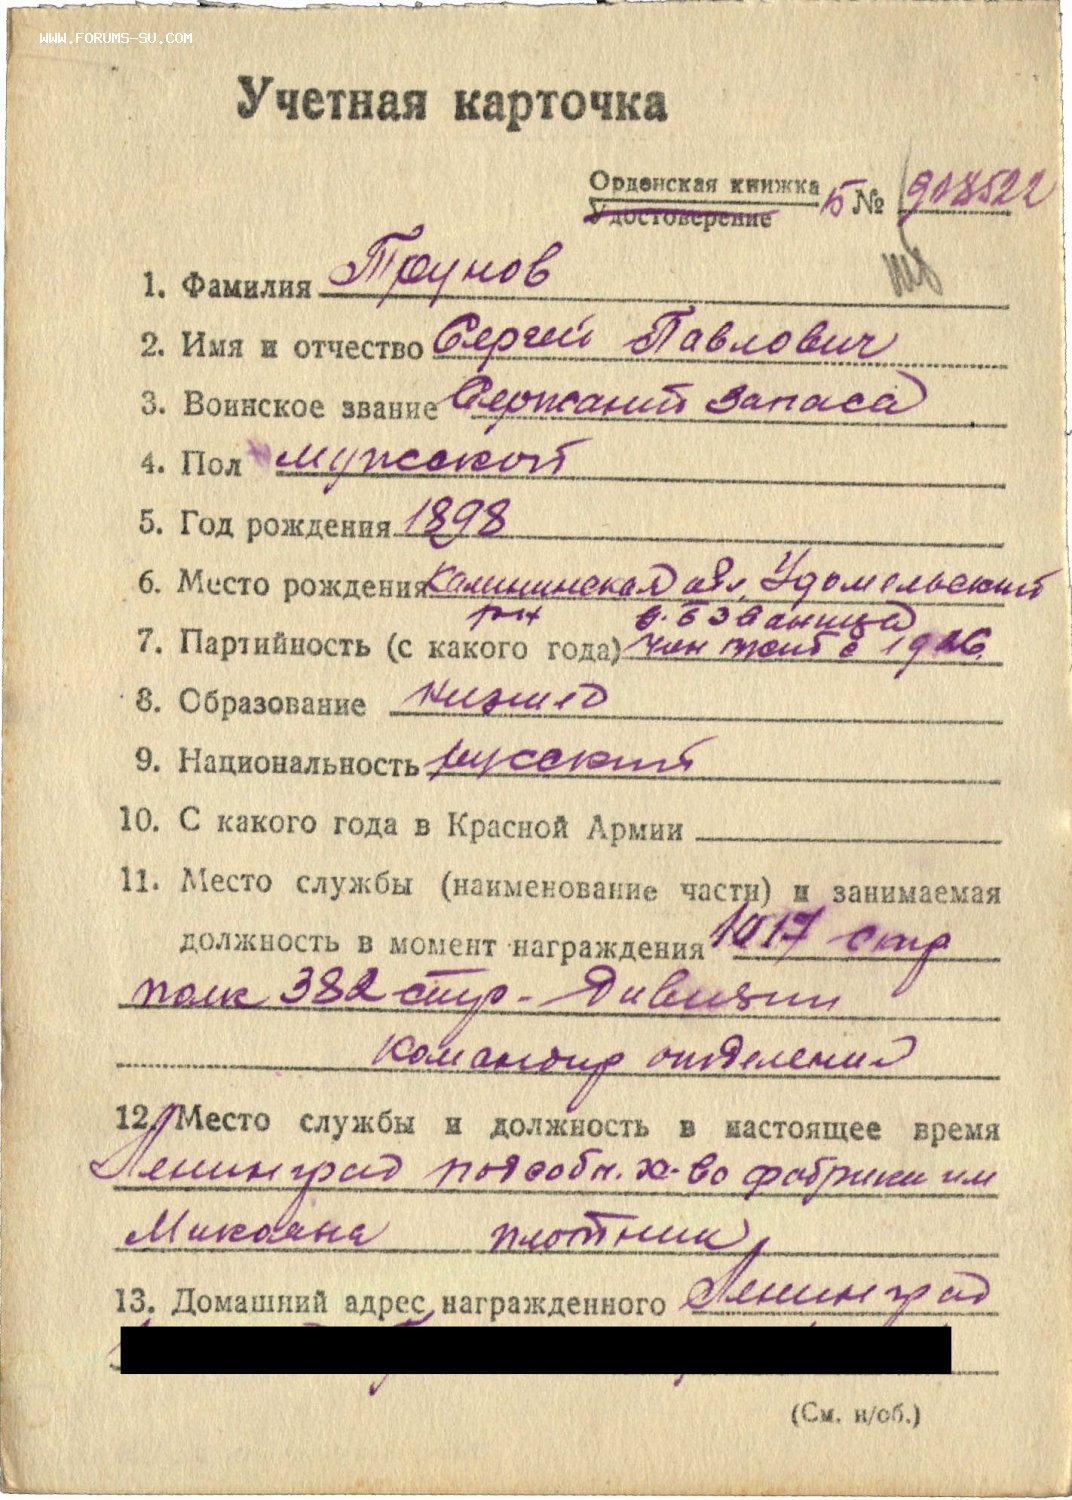 WWW.FORUMS-SU.COM
Учетная карточка
Орденская книжка Б № 918522
Удостоверение
1. Фамилия Трунов
2. Имя и отчество Сергей Павлович
3. Воинское звание Сержант запаса
4. Пол мужской
5. Год рождения 1898
6. Место рождения Калининская обл, Удомельский
р-н
7. Партийность (с какого года) с 1926.
8. Образование низшее
9. Национальность русский
10. С какого года в Красной Армии
11. Место службы (наименование части) и занимаемая
должность в момент награждения 1017 стр
полк 382 стр. дивизии
командир отделения
12. Место службы и должность в настоящее время
Ленинград подсобн. х-во фабрики им
Микояна плотник
13. Домашний адрес награжденного Ленинград
(См. н/об.)